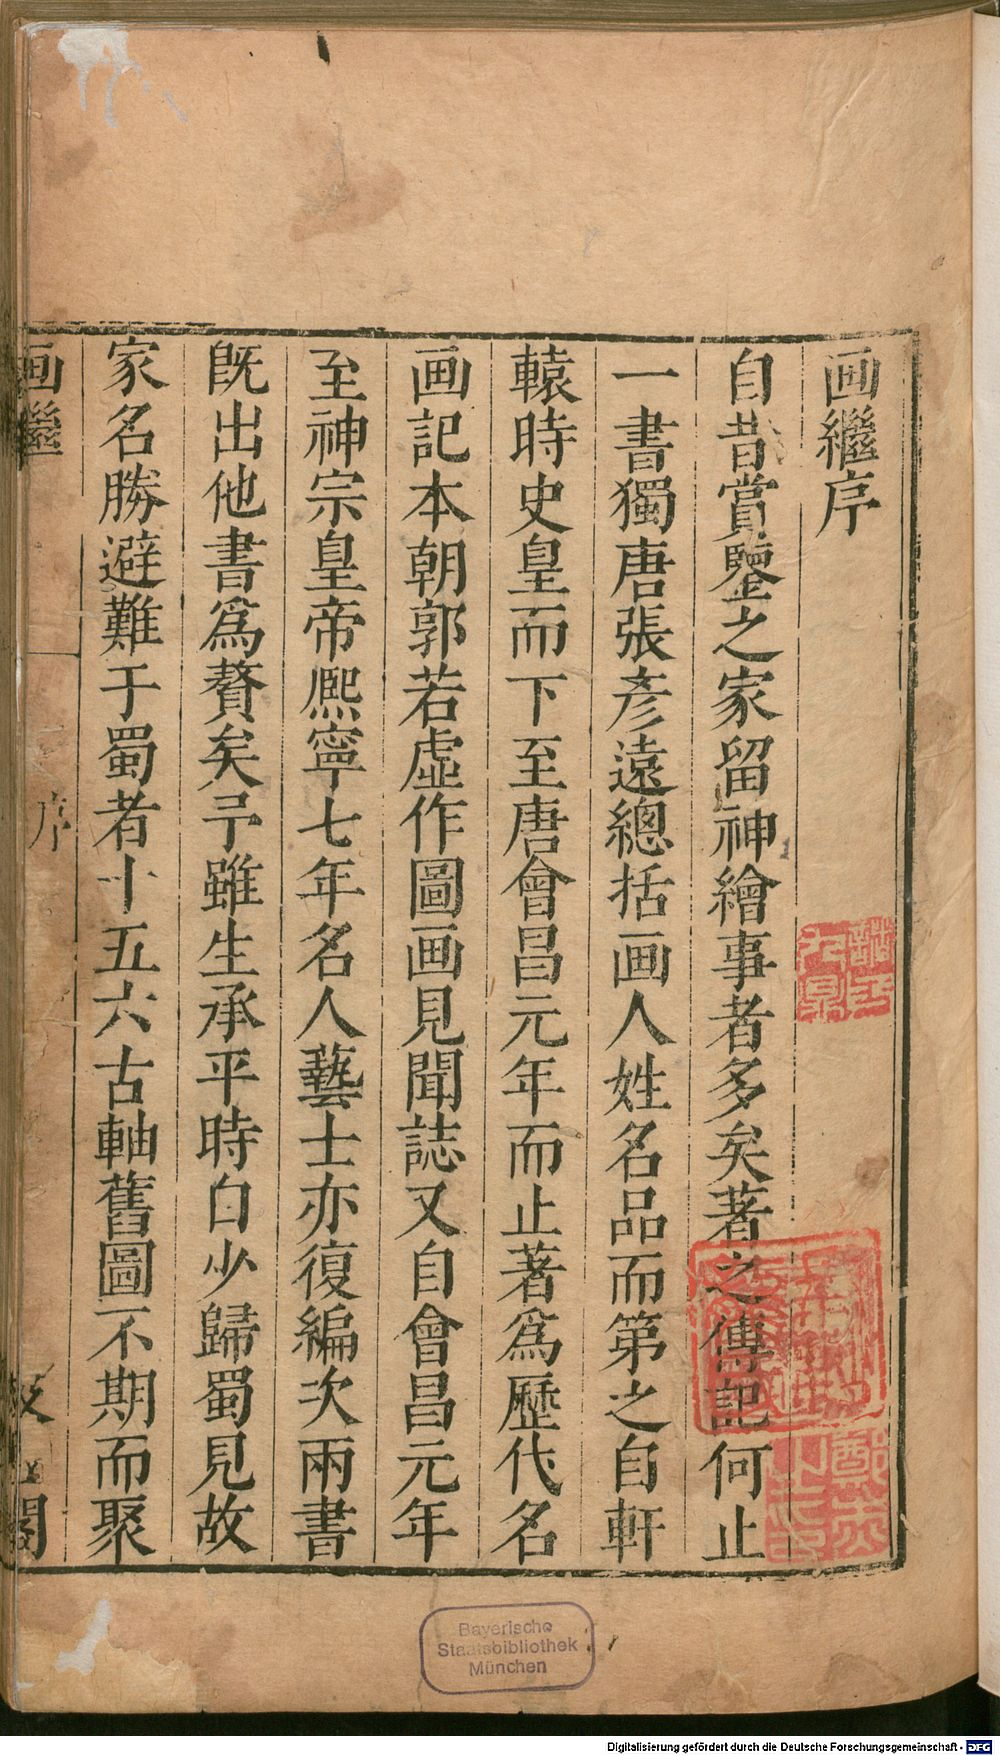 画繼序
自昔賞鑒之家留神繪事者多矣著之傳記何止
一書獨唐張彥遠總括画人姓名品而第之自軒
轅時史皇而下至唐會昌元年而止著爲歷代名
画記本朝郭若虛作圖画見聞誌又自會昌元年
至神宗皇帝熈寧七年名人藝士亦復編次兩書
既出他書爲贅矣予雖生承平時自少歸蜀見故
家名勝避難于蜀者十五六古軸舊圖不期而聚
画繼
序
閣
Bayerische
Staatsbibliothek
München
Digitalisierung gefördert durch die Deutsche Forschungsgemeinschaft - DFG